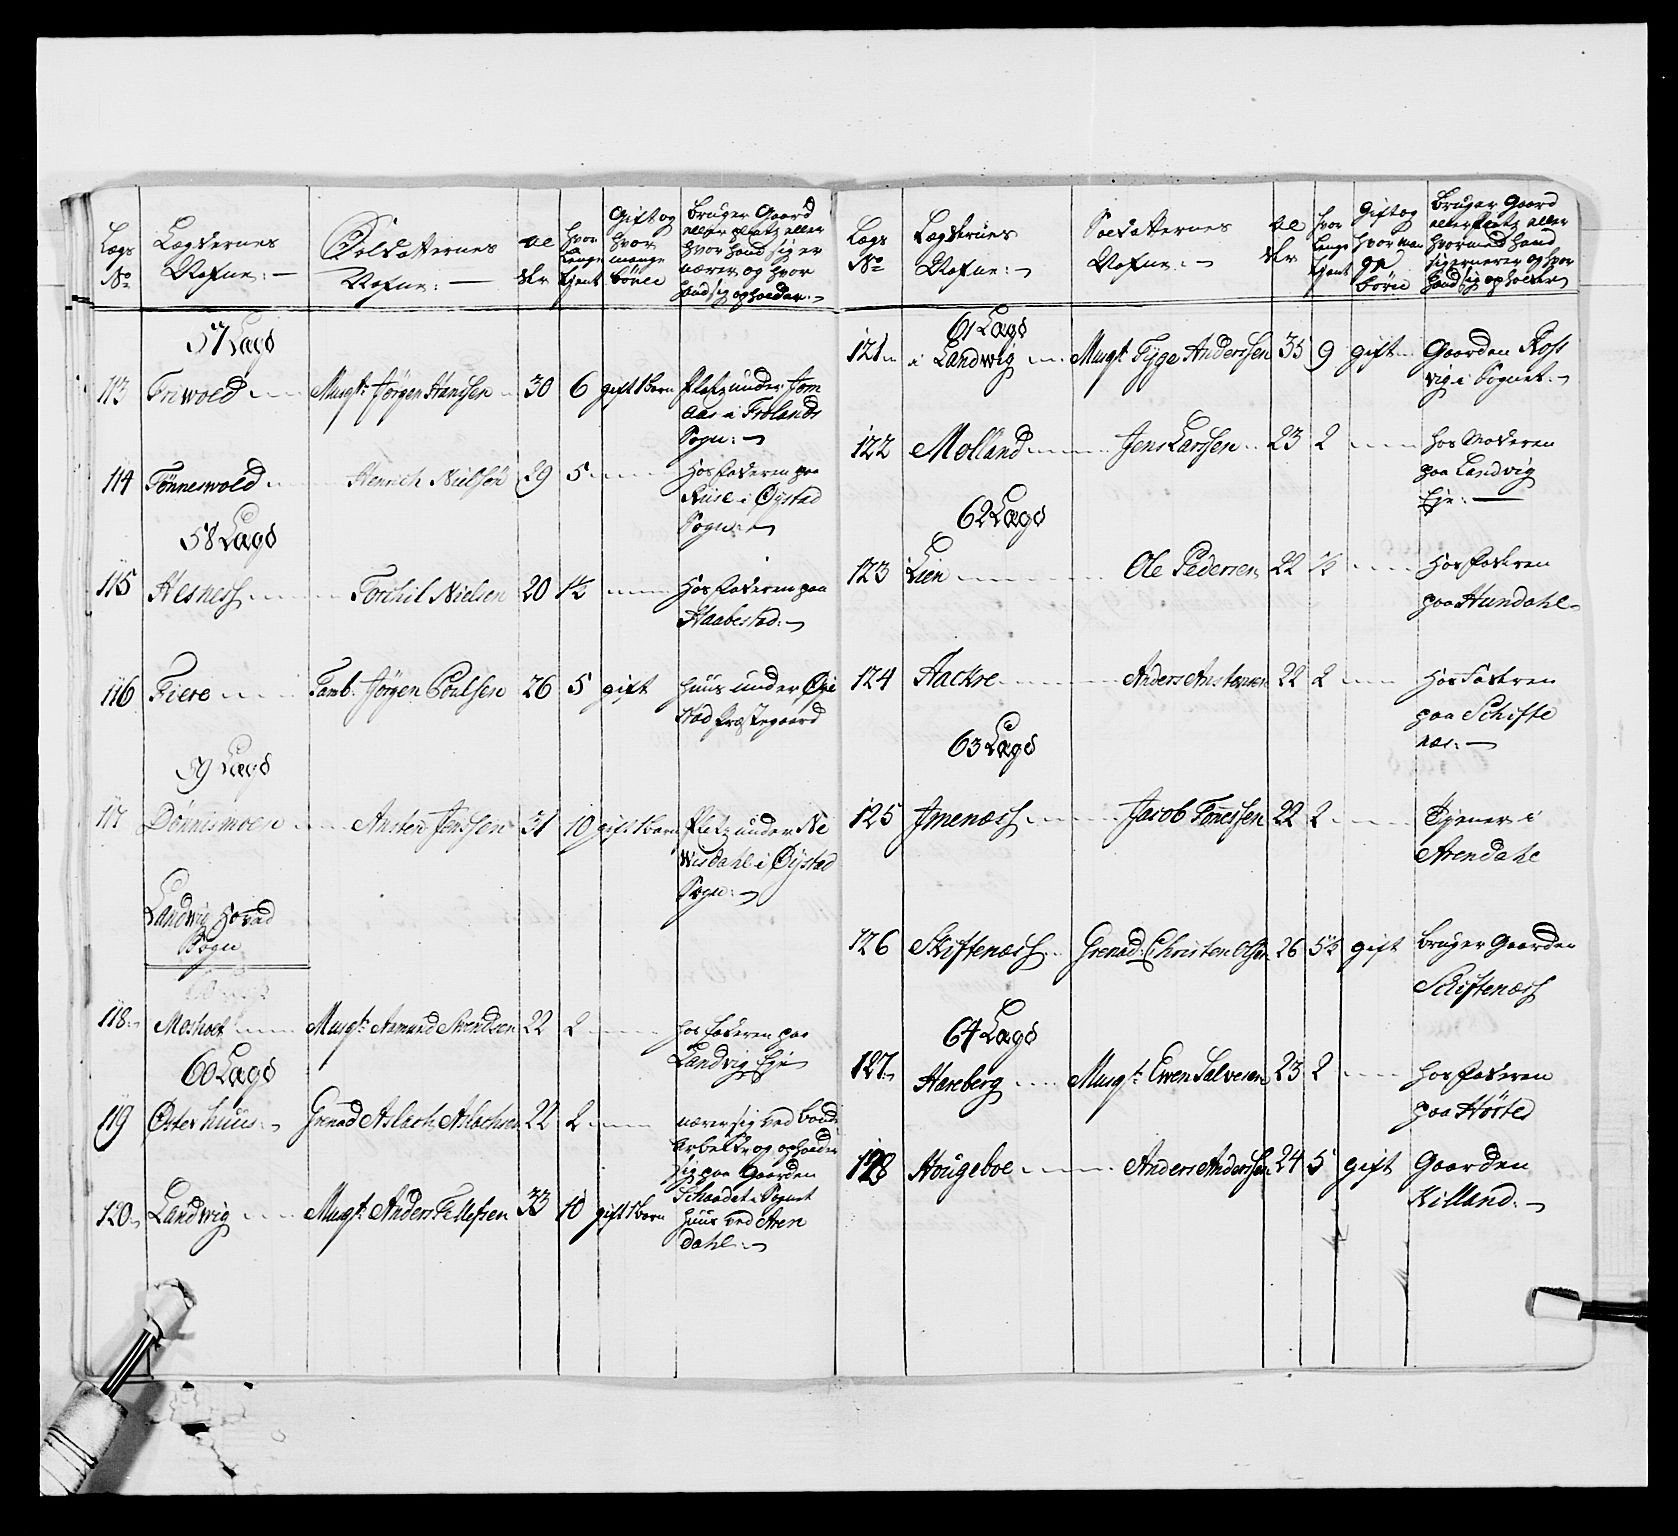 Lægs No | Lægdernes Nafne: | Soldatternes Nafne: | Al der | hvor Længe tjent | Gift og hvor mange börn | Bruger Gaard eller platz eller hvor hand sig er nærer og hvor hand sig opholder:
57 Lægd
113 Friwold Musqt: Jörgen Hanssen 30 6 gift 1 barn Platz under Jom
aas i Frolands
Sogn:
114 Tönneswold Henrich Nielsen 29 5 Hos faderen paa
Riise i Öystad
Sogn:
58 Lægd
115 Hesness Torchil Nielsen 20 1½ Hos faderen paa
Haabestad:
116 Fiere Tamb: Jörgen Poulsen 26 5 gift huus under Öye
stad Præstegaard
59 Lægd
117 Dönnismoen Ansten Jenssen 31 10 gift 1 barn Platz under Ne
wisdahl i Öystad
Sogn:
Landwig Hovæd
Sogn
118 Mosholt Musqt: Asmund Swendsen 22 2 hos faderen paa
Landvig Eje
60 Lægd
119 Österhuus Grenad Aslach Aslachsen 22 2 nærer sig ved bonde
Arbeide og opholder
sig paa Gaarden
Schaadet i Sognet
120 Landwig Musqt: Anders Tellefsen 33 10 gift 1 barn huus ved Aren
dahl:
Lægs No | Lægdernes Nafne: | Soldatternes Nafne: | Al der | hvor Længe tjent | Gift og hvor man ge börn | Bruger Gaard eller Platz eller hvormed hand sig ernærer og hvor hand sig opholder
61 Lægd
121 i Landwig Musqt: Tyge Anderssen 35 9 gift Gaarden Rosf
vig i Sognet:
122 Molland Jens Larssen 23 2 hos Moderen
paa Landvig
Eje:
62 Lægd
123 Lien Ole Pedersen 22 ½ Hos faderen
paa Hundahl
124 Hackre Anders 22 2 Hos Faderen
paa Schifte
næs:
63 Lægd
125 Jmenæss Jacob Tönessen 22 2 Tjener i
Arendahl
126 Skiftenæss Grenad: Christen Olsen 26 5½ gift bruger Gaarden
Schiftenæss
64 Lægd
127 Hæreberg Musqt: Ewen Salvesen 23 2 hos faderen
paa Hörte
128 Hougeboe Anders Anderssen 24 5 gift Gaarden
Killand: